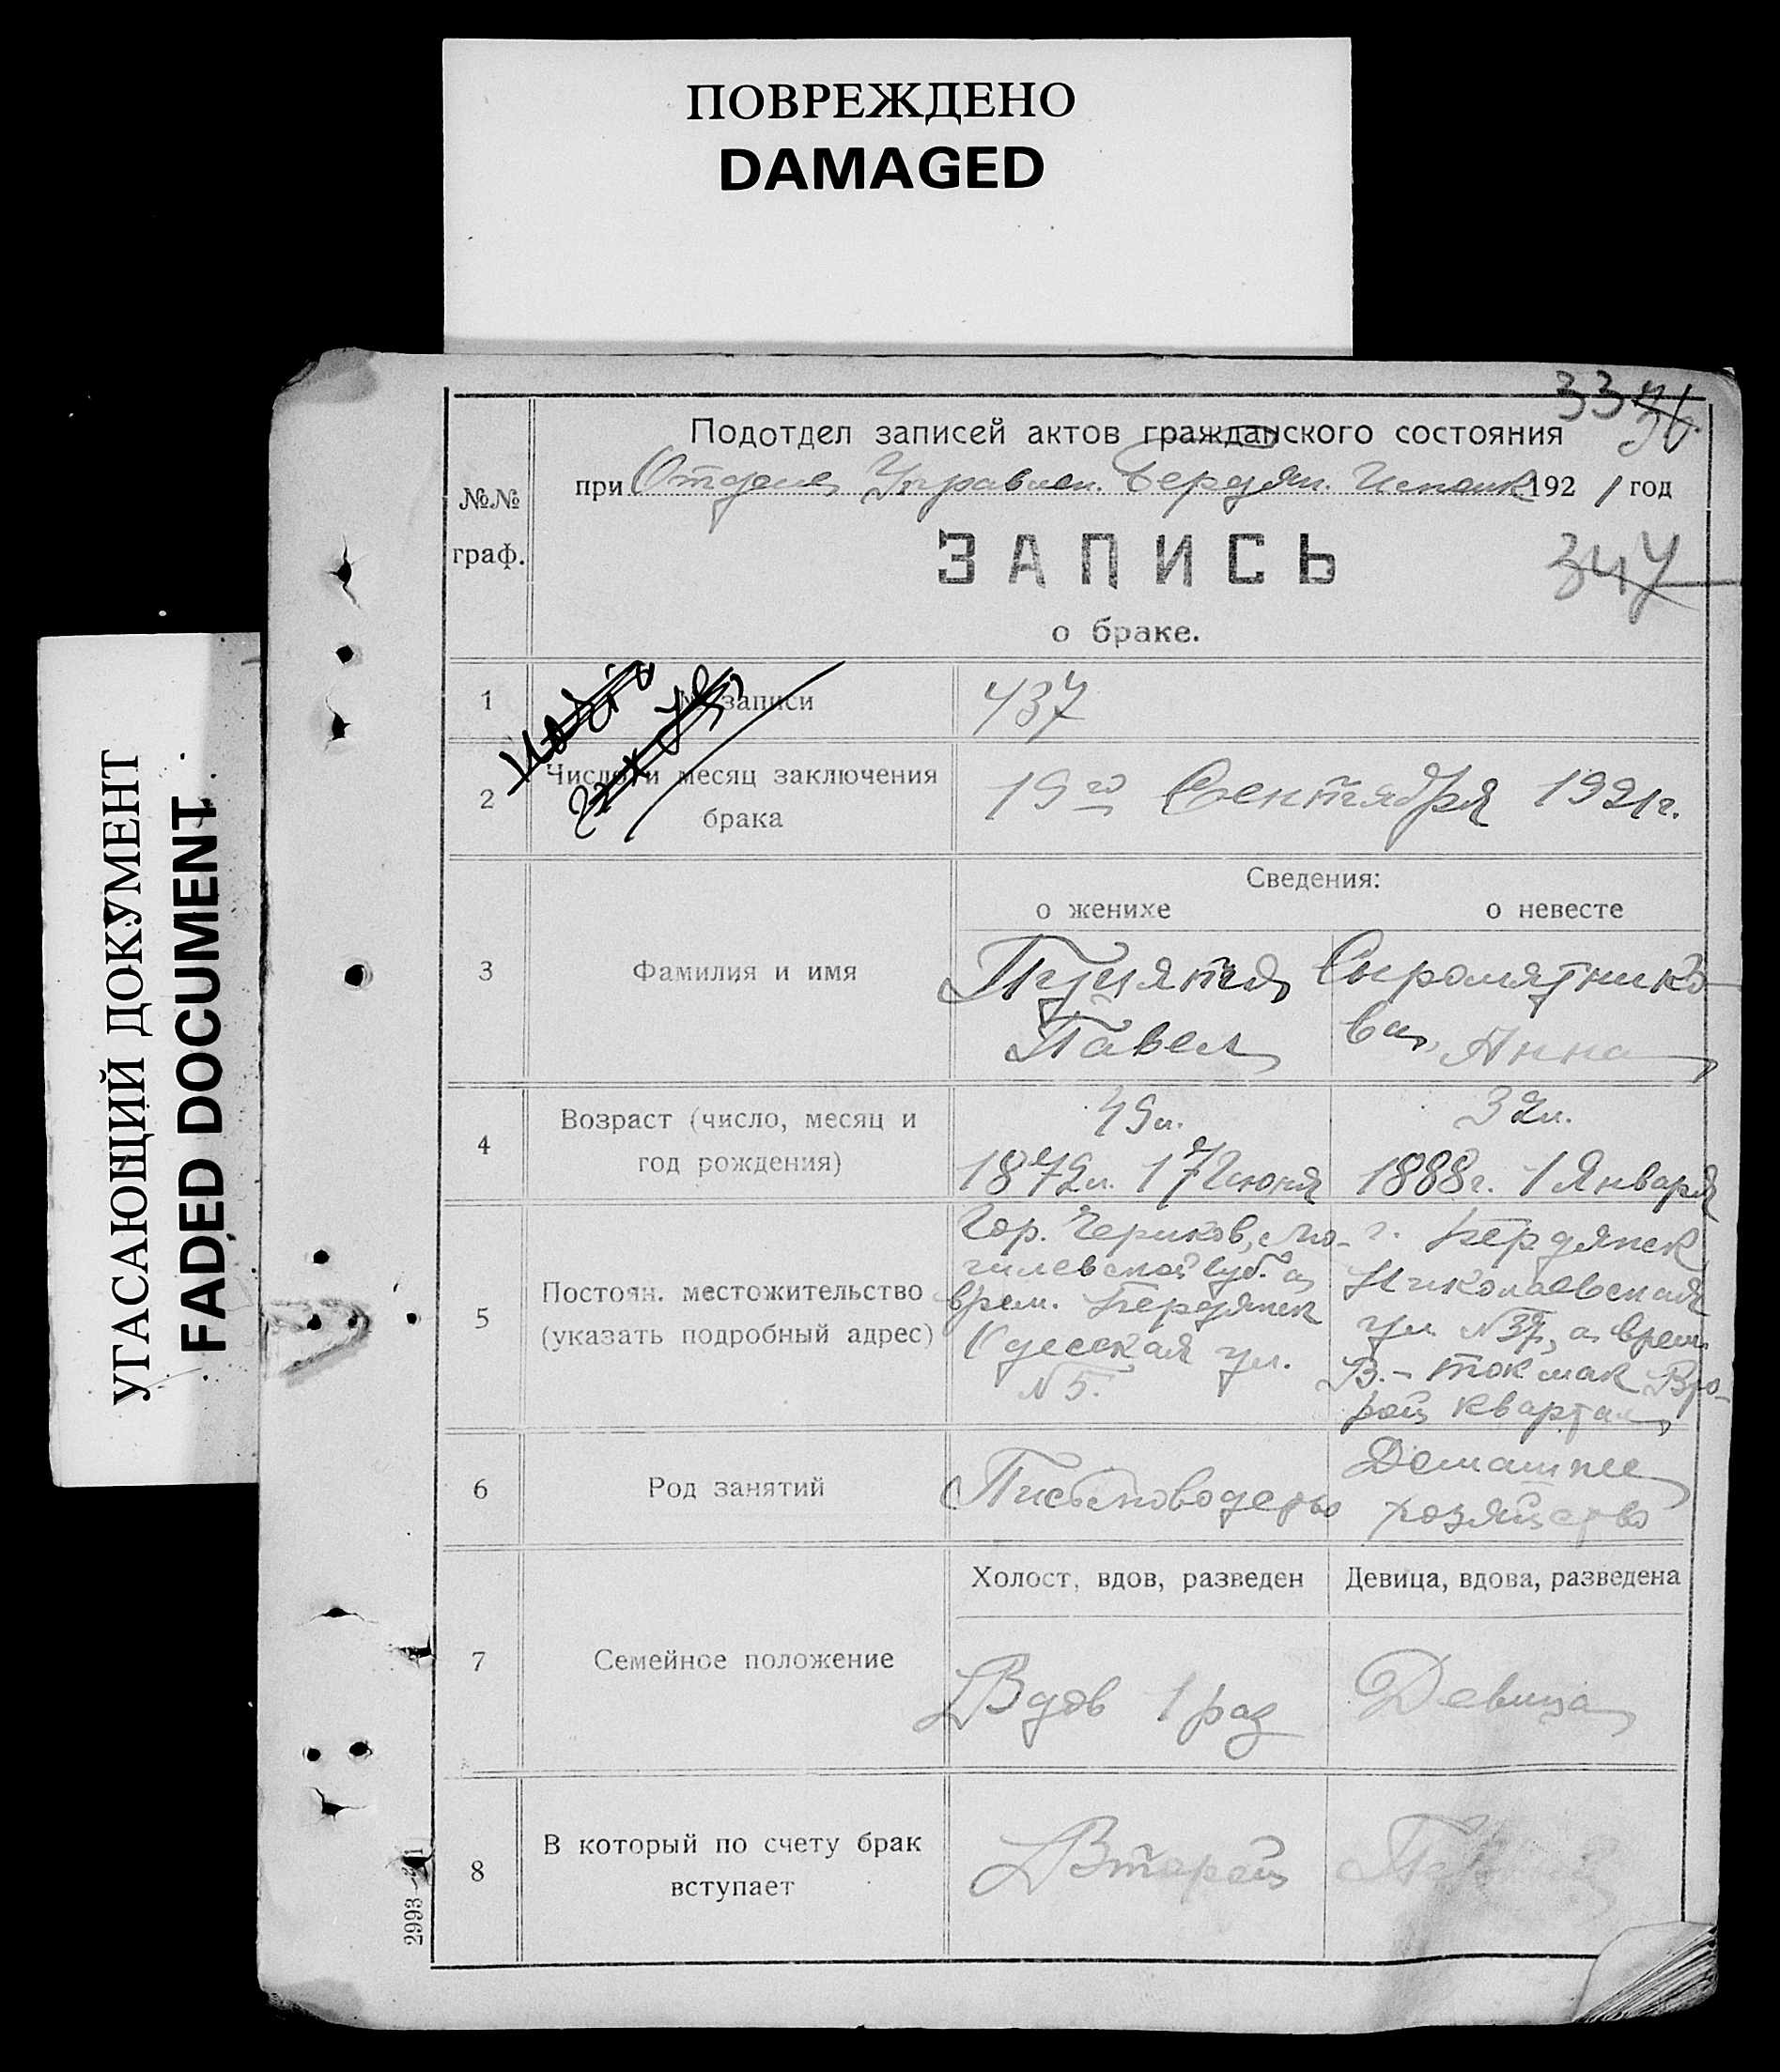 ПОВРЕЖДЕНО
DAMAGED
УГАСАЮЩИЙ ДОКУМЕНТ
FADED DOCUMENT
33 36
Подотдел записей актов гражданского состояния
№№ граф.
при Отделе Управлен. Бердян. Исполк 1921 год
ЗАПИСЬ
347
о браке.
1 № записи 437
2 Число и месяц заключения брака 19го Сентября 1921г.
Сведения:
о женихе о невесте
3 Фамилия и имя
Павел
Сыромятнико
ва, Анна
4 Возраст (число, месяц и год рождения)
49л. 32л.
1872г. 17 Июня 1888г. 1 Января
5 Постоян. местожительство (указать подробный адрес)
Гор. Чериков, Мо-
гилевской губ. а
врем. Бердянск
Одесская ул.
№ 5.
г. Бердянск
Николаевская
ул. № 37, а врем.
В.-Токмак Вто-
рой квартал
6 Род занятий
Письмоводство
Домашнее
хозяйство
Холост, вдов, разведен Девица, вдова, разведена
7 Семейное положение
Вдов 1 раз Девица
8 В который по счету брак вступает
Второй
2993